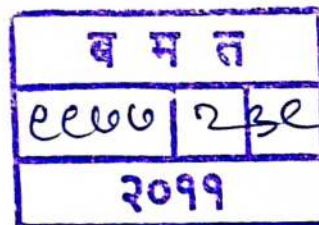 ब म त
९९७७ २ ३९
२०११